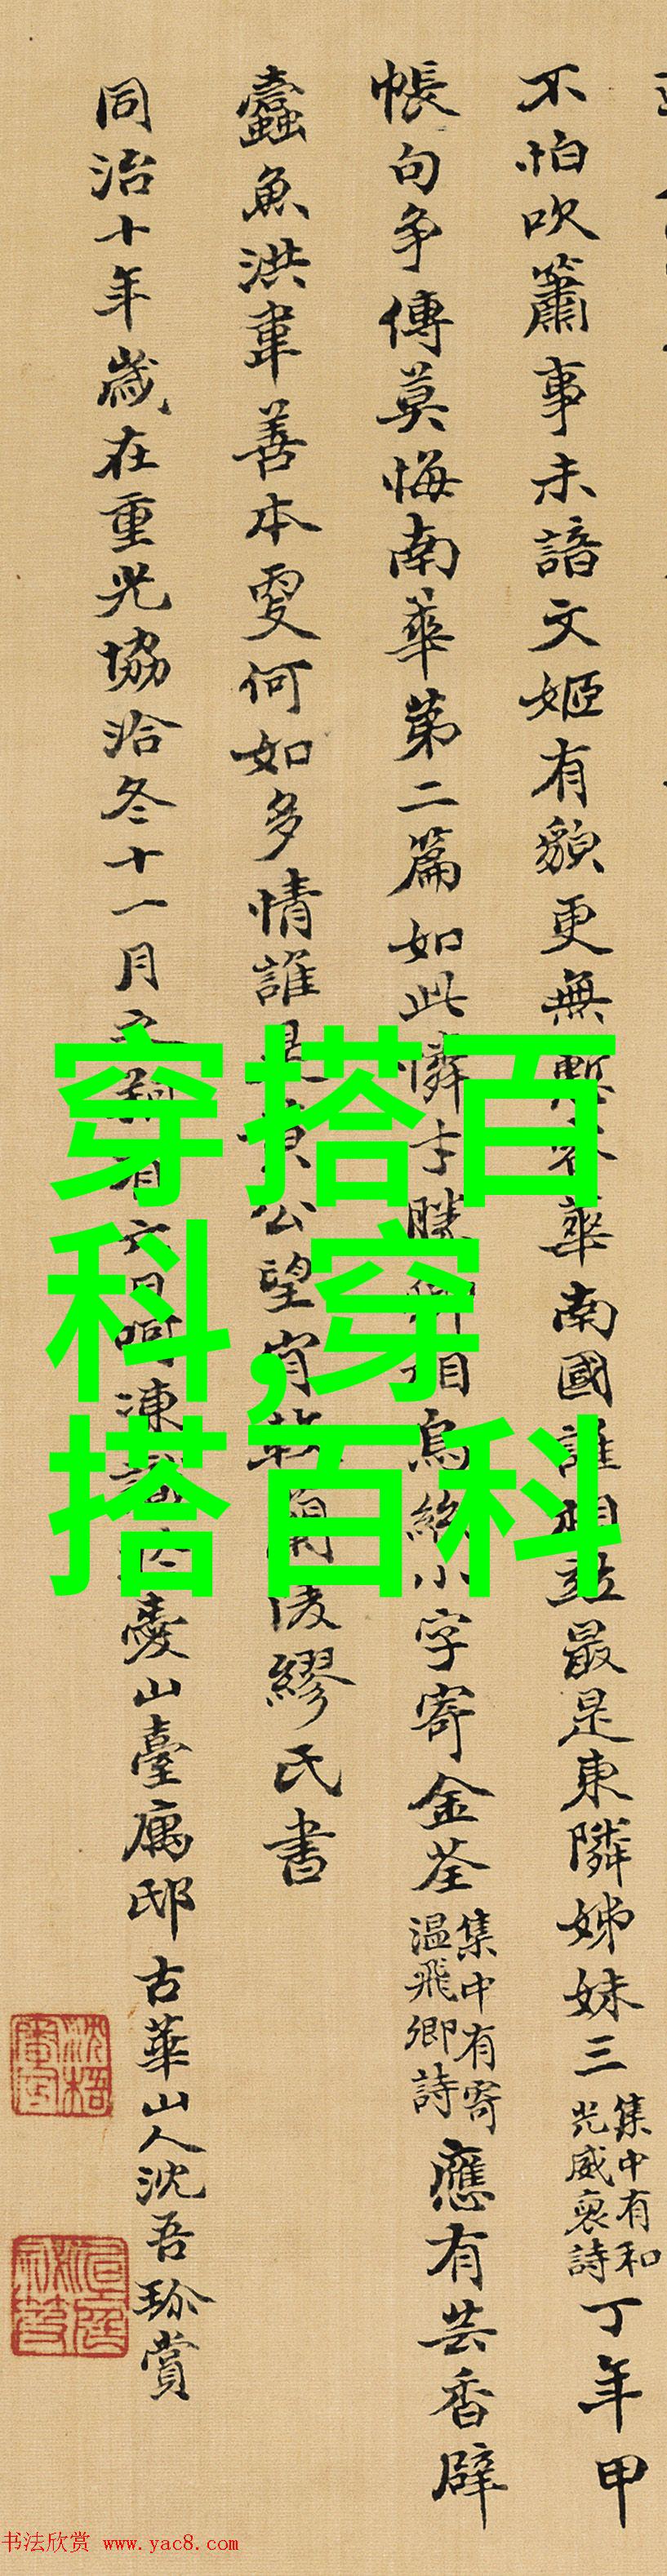 不怕吹簫事未諳文姬有貌更無慙容華南國誰相並最是東隣姊妹三
集中有和
光威裒詩
丁年甲
帳句爭傳莫悔南華第二篇如此憐才勝卿相烏絲小字寄金荃
集中有寄
溫飛卿詩
應有芸香辟
蠹魚洪韋善本更何如多情誰是黃公望肯
繆氏書
同治十年歲在重光協洽冬十一月之朔有六日呵凍
山臺寓邸古華山人沈吾珍賞
穿搭百
科,穿
搭百科
书法欣赏 www.yac8.com